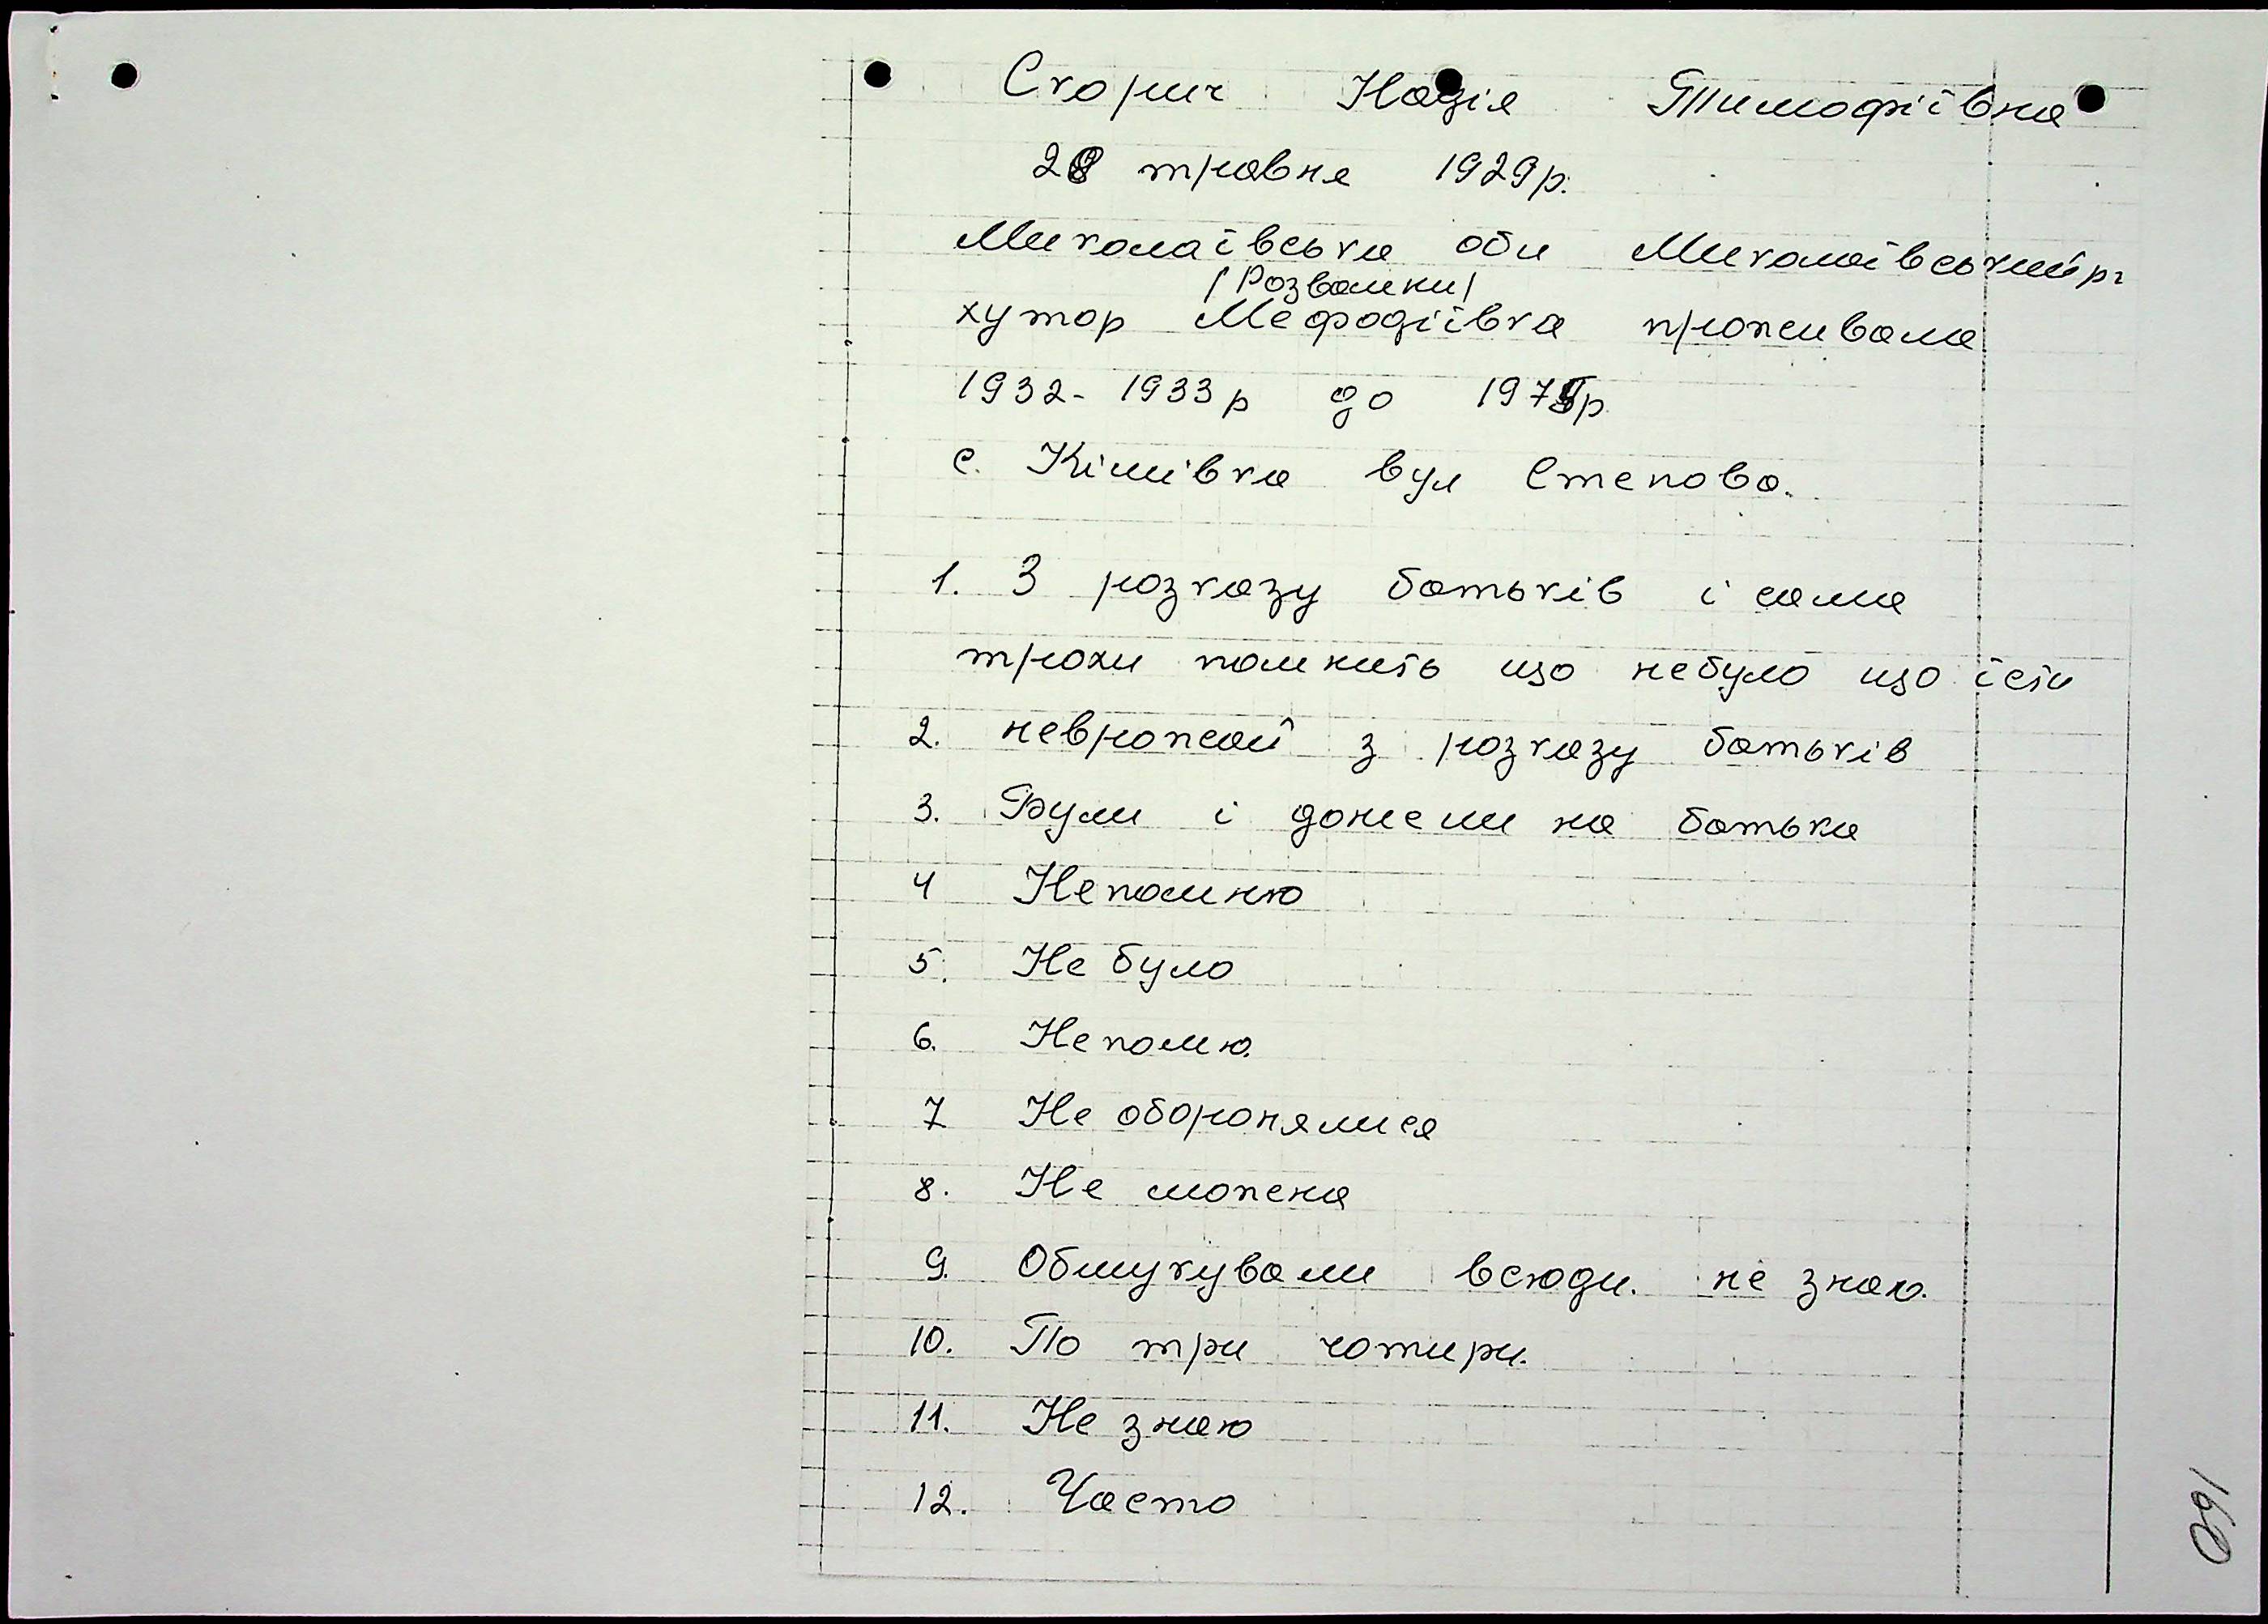 Скорич Надія Тимофіївна
28 травня 1929р.
Миколаївська обл Миколаївський р-
/Розвалки/
хутор Мефодіївка проживала
1932-1933р до 197 р
с. Кімівка вул Степова.
1. З розказу батьків і сама
трохи помнить що небуло що їсти
2. неврожай з розказу батьків
3. Були і донесли на батька
4 Непомню
5. Не було
6. Непомю.
7 Не оборонялися
8. Не можена
9. Обшукували всюди. не знаю.
10. По три чотири.
11. Не знаю
12. Часто
160